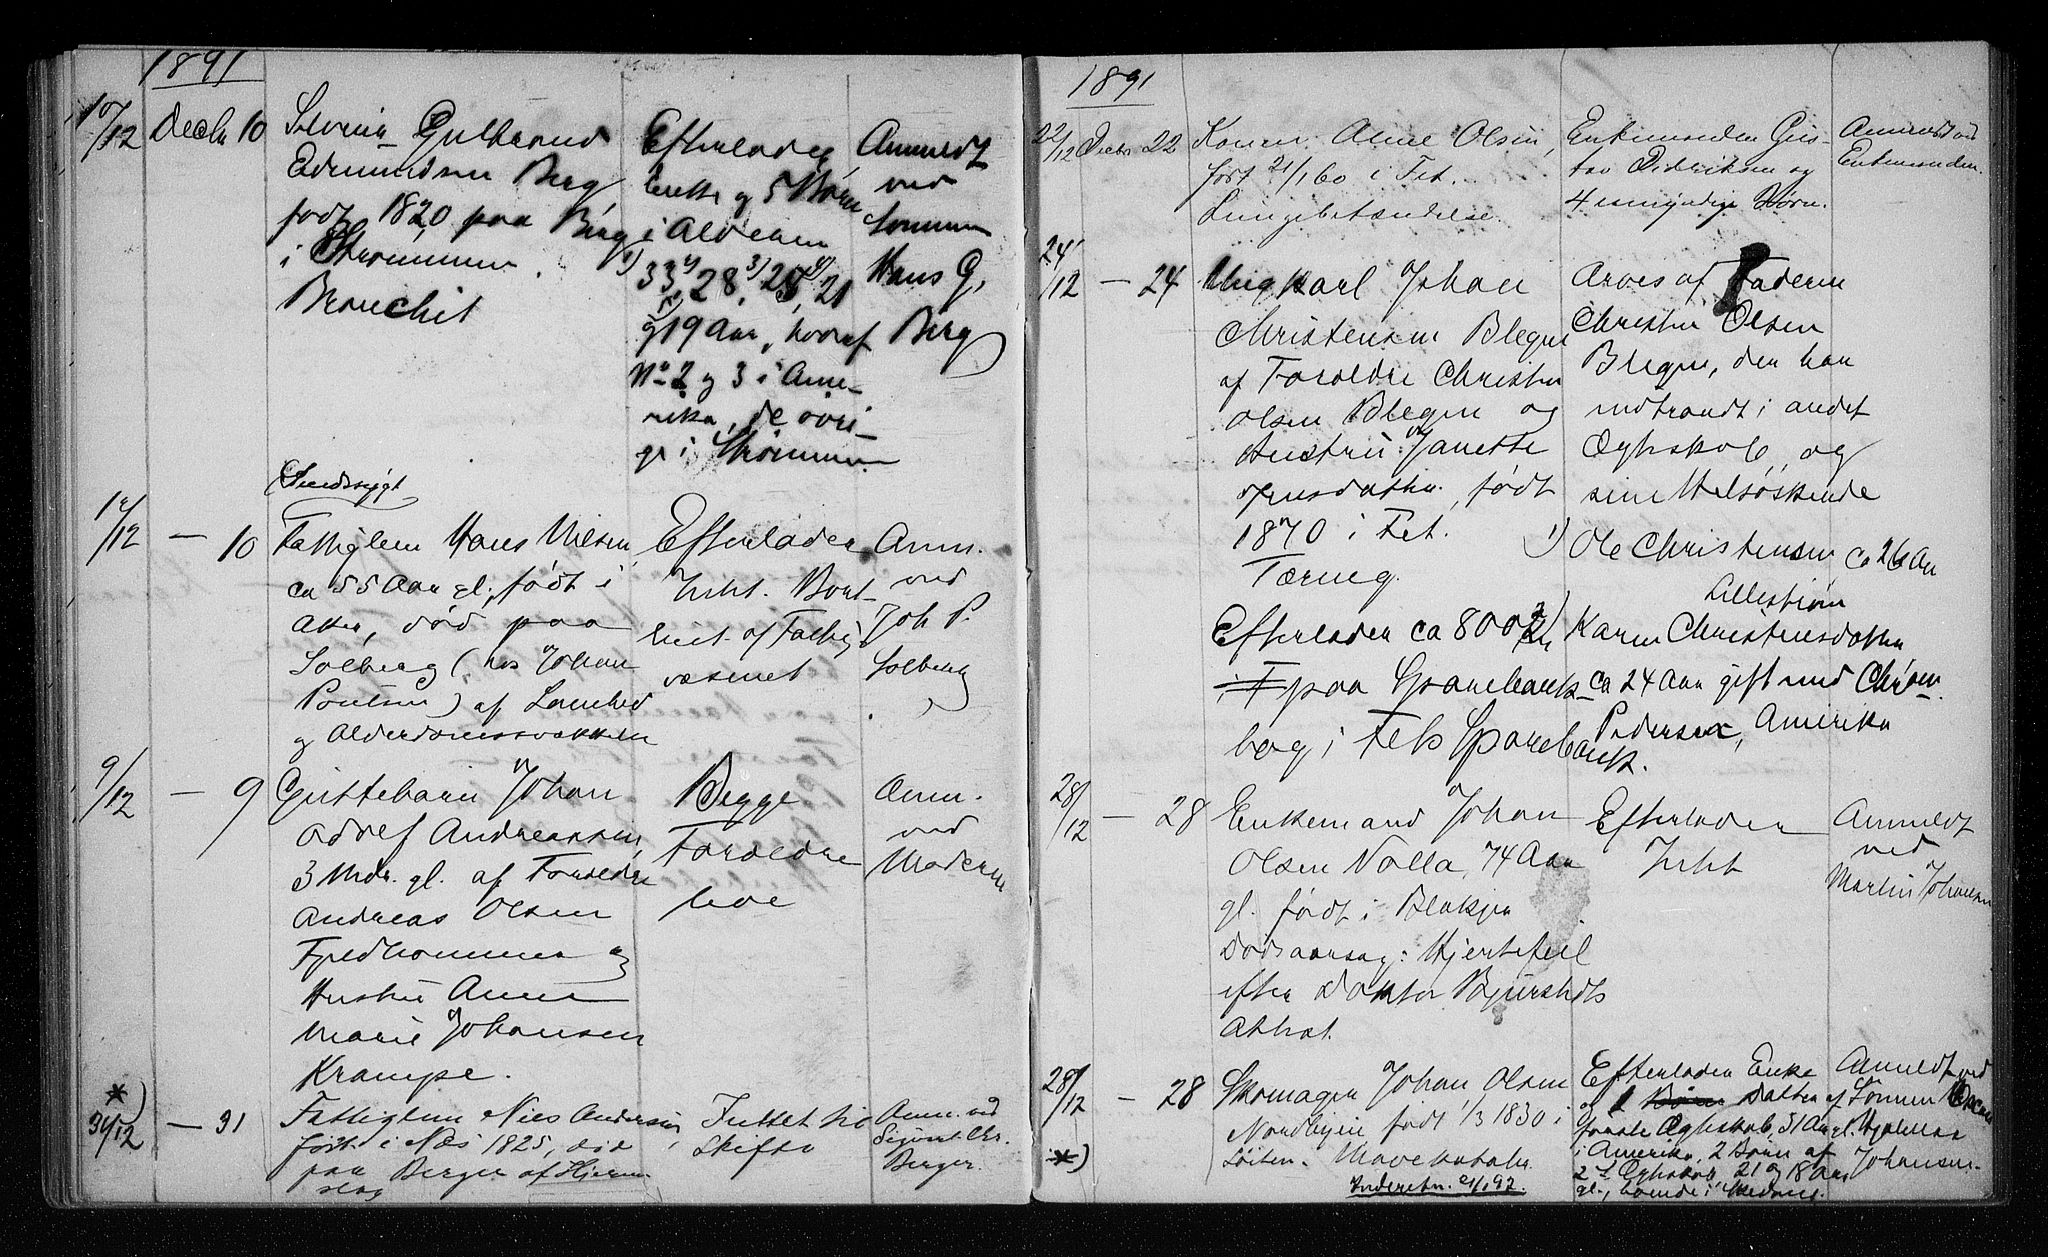 1891
10/12 Decbr 10 Selveier Gulbrand
Edmundsen Berg
født 1820 paa Berg
i Strømmen.
Bronchit
Efterlader
Enke og 5 Børn
i Alderen
1) 33 2) 28, 3) 25, 4) 21
og 5) 19 Aar, hvoraf
No 2 og 3 i Ame-
rika, de øvri-
ge i Strømmen
Anmeldt
ved
Sønnen
Hans G.
Berg
(Sindssygt
12/12 — 10 Fattiglem Hans Nilsen
ca 55 Aar gl., født i
Aker, død paa
Solberg (hos Johan
Poulsen) af
og Alderdomssvækkelse
Efterlader
Intet. Bort-
af Fattig
væsenet
Anm.
ved
Joh P.
Solberg
9/12 — 9 Guttebarn Johan
Adolf Andreassen,
3 Mdr. gl. af Forældre
Andreas Olsen
og
Hustru Anne
Marie Johansen
Krampe.
Begge
Forældre
leve
Anm.
ved
Moderen
*)
31/12 — 31 Fattiglem Nils Andersen,
født i Næs 1825, død
paa Berger af Hjerne
slag
Intet til
Skifte
Anm. ved
Sigvart Chr.
Berger.
1891
22/12 Decbr 22 Konen Olsen,
født 21/1 60 i Fet.
Lungebetændelse.
Enkemanden Gus-
tav Didriksen og
4 umyndige Børn.
Anmeldt ved
Enkemanden.
24/12 — 24 Ungkarl Johan
Christensen Blegen
af Forældre Christen
Olsen Blegen og
Hustru Janette
Jensdatter, født
1870 i Fet.
Tæring.
Efterlader ca 800 Kr
paa Sparebank-
bog i Fets Sparebank.
Arves af Faderen
Christen Olsen
Blegen, den han
indtraadt i andet
Ægteskab og
sine Helsøskende
1) Ole Christensen ca 26 Aar
Lillestrøm
2) Karen Christensdatter
ca 24 Aar gift med
Pedersen, Amerika
28/12 — 28 Enkemand Johan
Olsen Nolla, 74 Aar
gl. født i Blakjer
Dødsaarsag: Hjertefeil
efter Doktor Bjurstedts
Attest.
Efterlader
Intet
Anmeldt
ved
Martin Johansen
28/12 — 28 Skomager Johan Olsen
Nordbyeie født 1/3 1830 i
Løiten. Mavekatahr.
*) Inderetn. 2/1 92.
Efterlader Enke
og 1 Datter af
første Ægteskab, 31 Aar gl.
i Amerika, 2 Børn af
2det Ægteskab 21 og 18 Aar
gl., boende i Skedsmo.
Anmeldt ved
Sønnen Oscar
Hjalmar
Johansen.